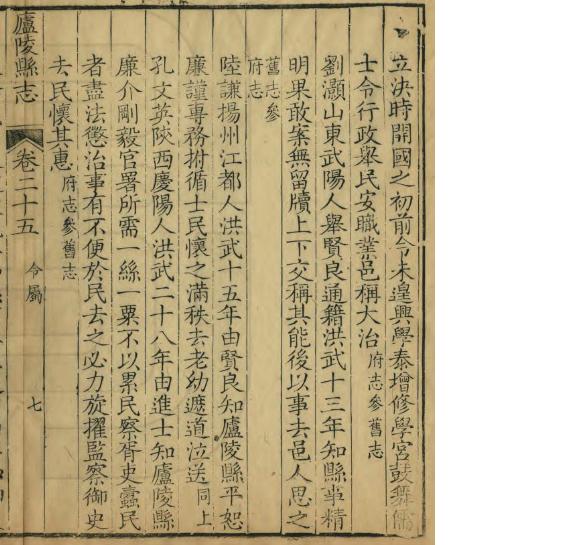 立決時開國之初前令未遑興學泰增修學宮鼓舞儒
士令行政舉民安職業邑稱大治府志參舊志
劉灝山東武陽人舉賢良通籍洪武十三年知縣事精
明果敢案無留牘上下交稱其能後以事去邑人思之
舊志參
府志
陸謙揚州江都人洪武十五年由賢良知廬陵縣平恕
廉謹專務拊循士民懷之滿秩去老幼遮道泣送同上
孔文英陝西慶陽人洪武二十八年由進士知廬陵縣
廉介剛毅官署所需一絲一粟不以累民察胥吏蠹民
者盡法懲治事有不便於民去之必力旋擢監察御史
去民懷其惠府志參舊志
廬陵縣志 卷二十五 令屬 七